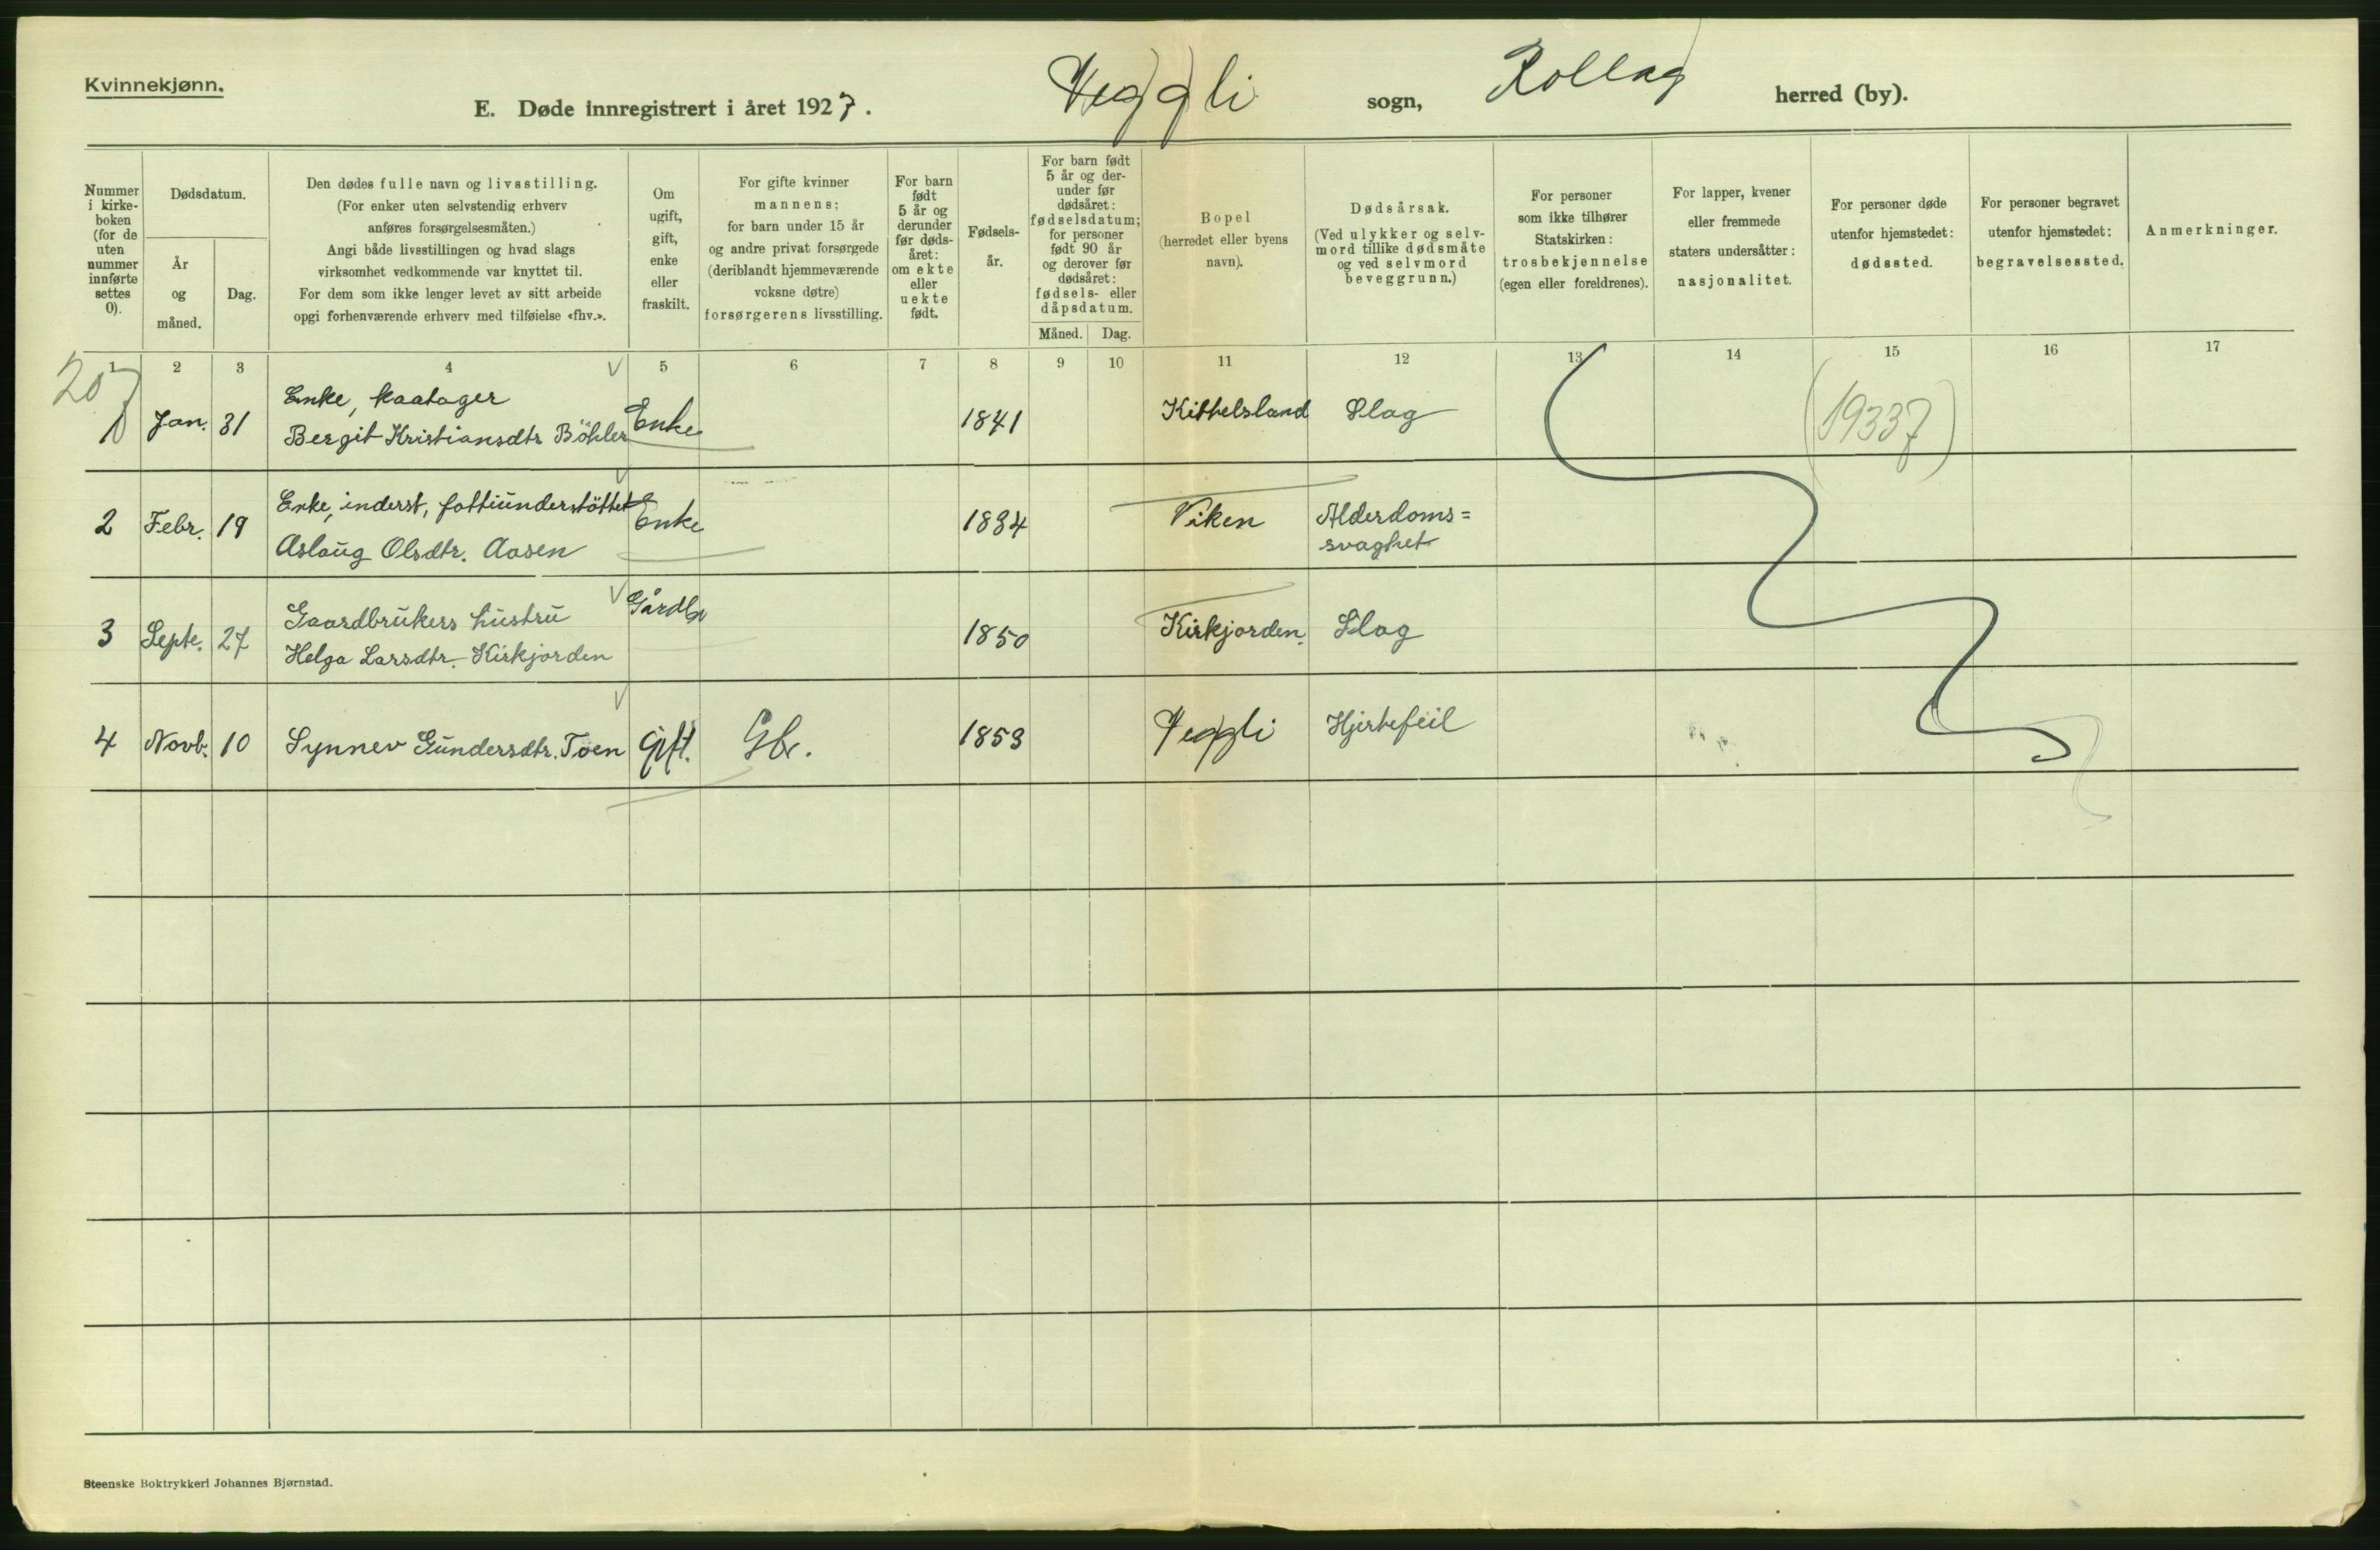 Kvinnekjønn.
E. Døde innregistrert i året 1927. Veggli sogn, Rollag herred (by).
Nummer i kirke-boken (for de uten nummer innførte settes 0).
Dødsdatum.
År og måned.
Dag.
Den dødes fulle navn og livsstilling.
(For enker uten selvstendig erhverv
anføres forsørgelsesmåten.)
Angi både livsstillingen og hvad slags
virksomhet vedkommende var knyttet til.
For dem som ikke lenger levet av sitt arbeide
opgi forhenværende erhverv med tilføielse «fhv.».
Om ugift, gift, enke eller fraskilt.
For gifte kvinner
mannens;
for barn under 15 år
og andre privat forsørgede
(deriblandt hjemmeværende
voksne døtre)
forsørgerens livsstilling.
For barn født 5 år og derunder før døds-året: om ekte eller uekte født.
Fødsels-år.
For barn født
5 år og der-
under før
dødsåret:
fødselsdatum;
for personer
født 90 år
og derover før
dødsåret:
fødsels- eller
dåpsdatum.
Måned. Dag.
Bopel
(herredet eller byens
navn).
Dødsårsak.
(Ved ulykker og selv-
mord tillike dødsmåte
og ved selvmord
beveggrunn.)
For personer
som ikke tilhører
Statskirken:
trosbekjennelse
(egen eller foreldrenes).
For lapper, kvener
eller fremmede
staters undersåtter:
nasjonalitet.
For personer døde
utenfor hjemstedet:
dødssted.
For personer begravet
utenfor hjemstedet:
begravelsessted.
Anmerkninger.
1 2 3 4 5 6 7 8 9 10 11 12 13 14 15 16 17
207
Enke, kaatager
1 Jan. 31 Bergit Kristiansdtr Böhler Enke 1841 Kittelsland Slag (19337)
Enke, inderst, fattiunderstöttet
2 Febr. 19 Aslaug Olsdtr. Aasen Enke 1834 Viken Alderdoms=
svaghet
Gaardbrukers hustru Gårdbr
3 Septe. 27 Helga Larsdtr. Kirkjorden 1850 Kirkjorden. Slag
4 Novb. 10 Synnev Gundersdtr. Töen Gift. Gbr. 1853 Veggli Hjertefeil
Steenske Boktrykkeri Johannes Bjørnstad.